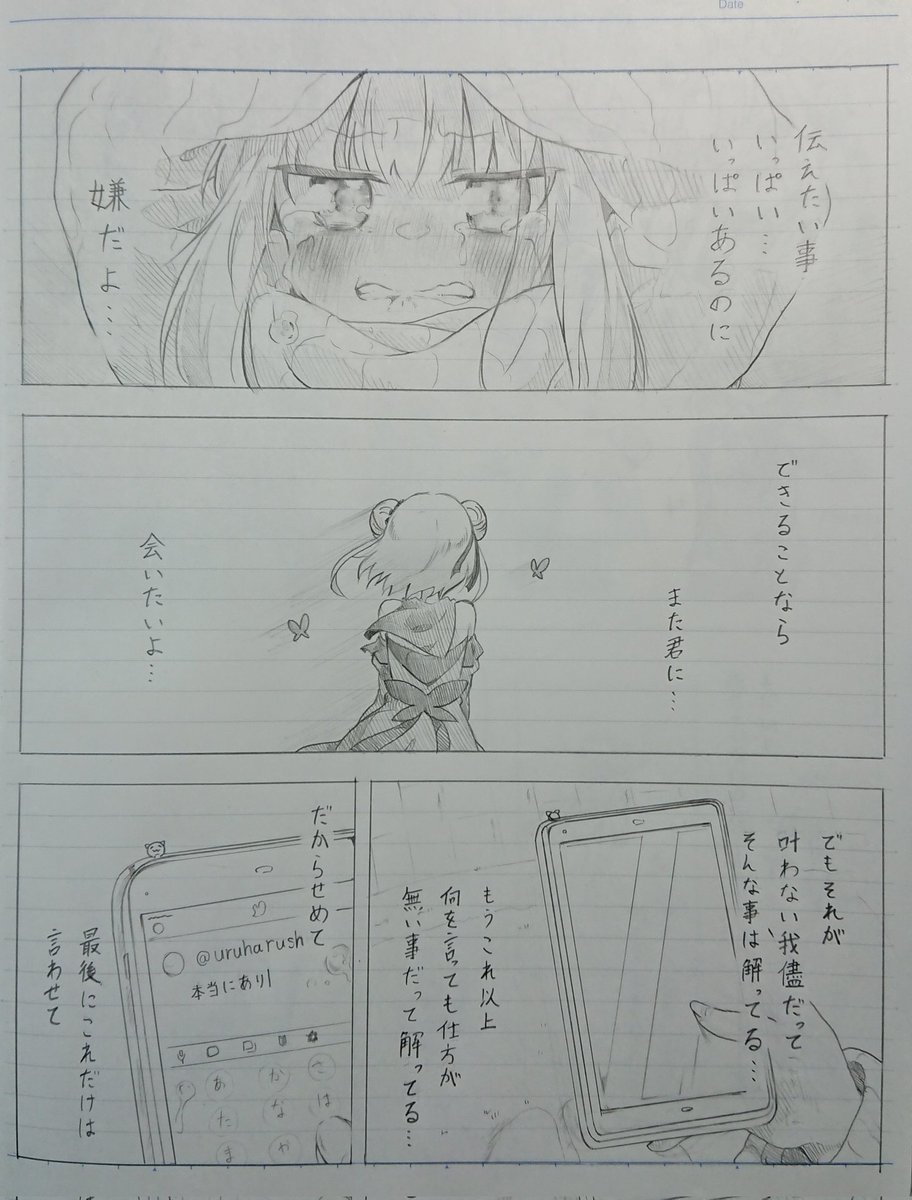 Date
伝えたい事
いっぱい…
いっぱいあるのに
嫌だよ…
できることなら
また君に…
会いたいよ…
でもそれが
叶わない我儘だって
そんな事は解ってる…
もうこれ以上
何を言っても仕方が
無い事だって解ってる…
だからせめて
@uruharush
本当にあり
あ か さ
た な は
ま や
最後にこれだけは
言わせて